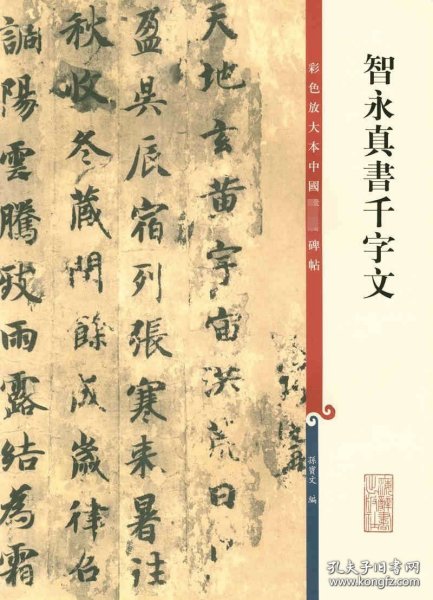 智永真書千字文
彩色放大本中國
碑帖
孫寶文 編
天地玄黄宇宙洪荒日
盈昃辰宿列張寒来暑往
秋收冬藏閏餘成歲律召
調陽雲騰致雨露結為霜
孔夫子旧书网
www.kongfz.com